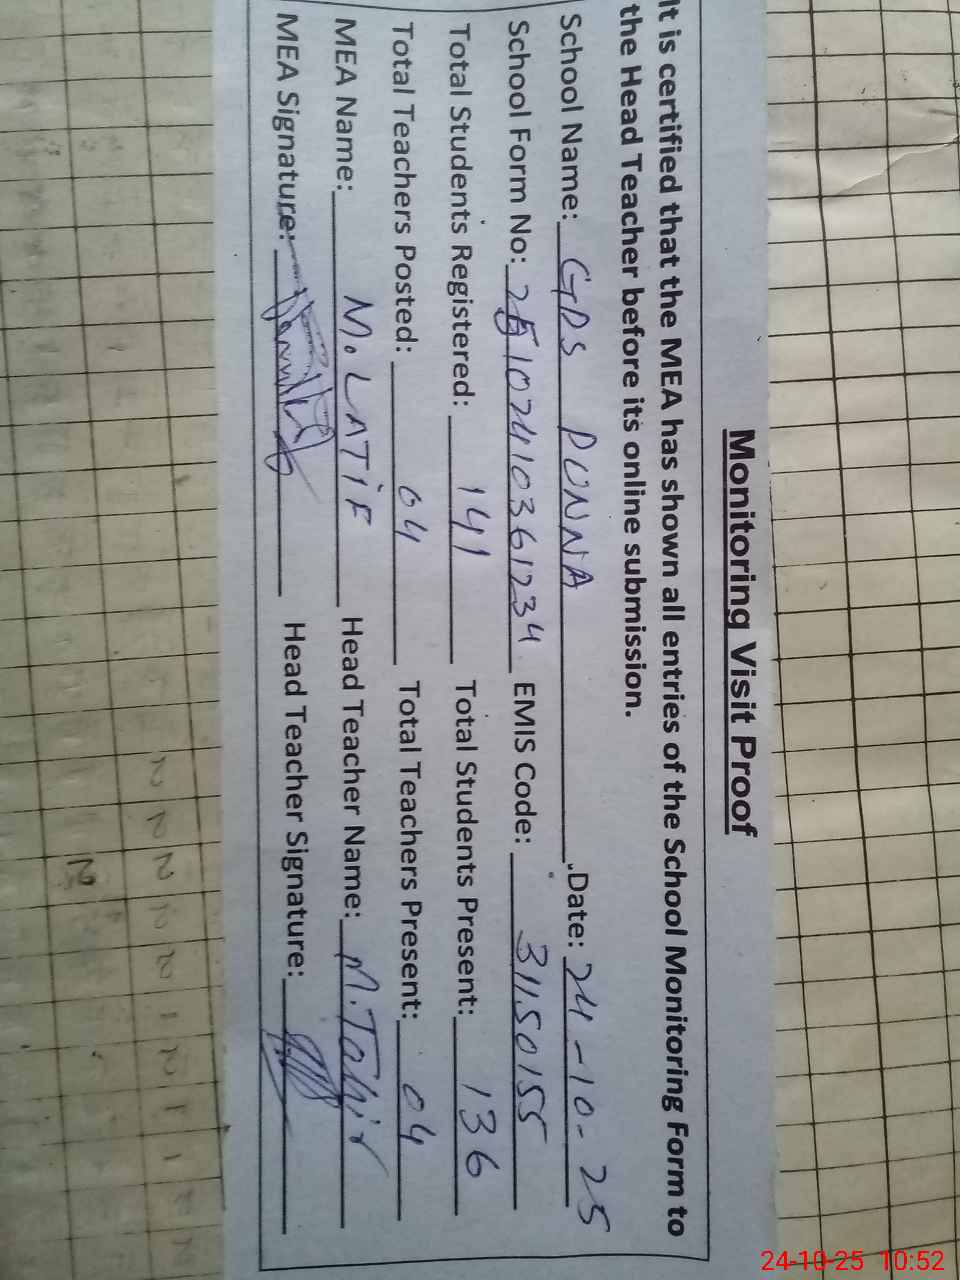 Monitoring Visit Proof
It is certified that the MEA has shown all entries of the School Monitoring Form to
the Head Teacher before its online submission.
School Name: GPS PUNNA Date: 24-10-25
School Form No: 25102410361234 EMIS Code: 31150155
Total Students Registered: 141 Total Students Present: 136
Total Teachers Posted: 04 Total Teachers Present: 04
MEA Name: M. LATIF Head Teacher Name: M. Tahir
MEA Signature: Head Teacher Signature:
24-10-25 10:52